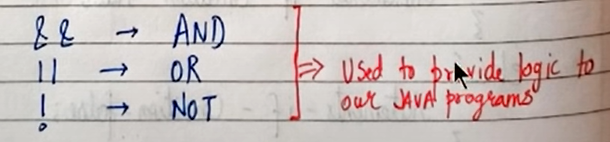 && → AND
|| → OR
! → NOT
⇒ Used to provide logic to
our JAVA programs